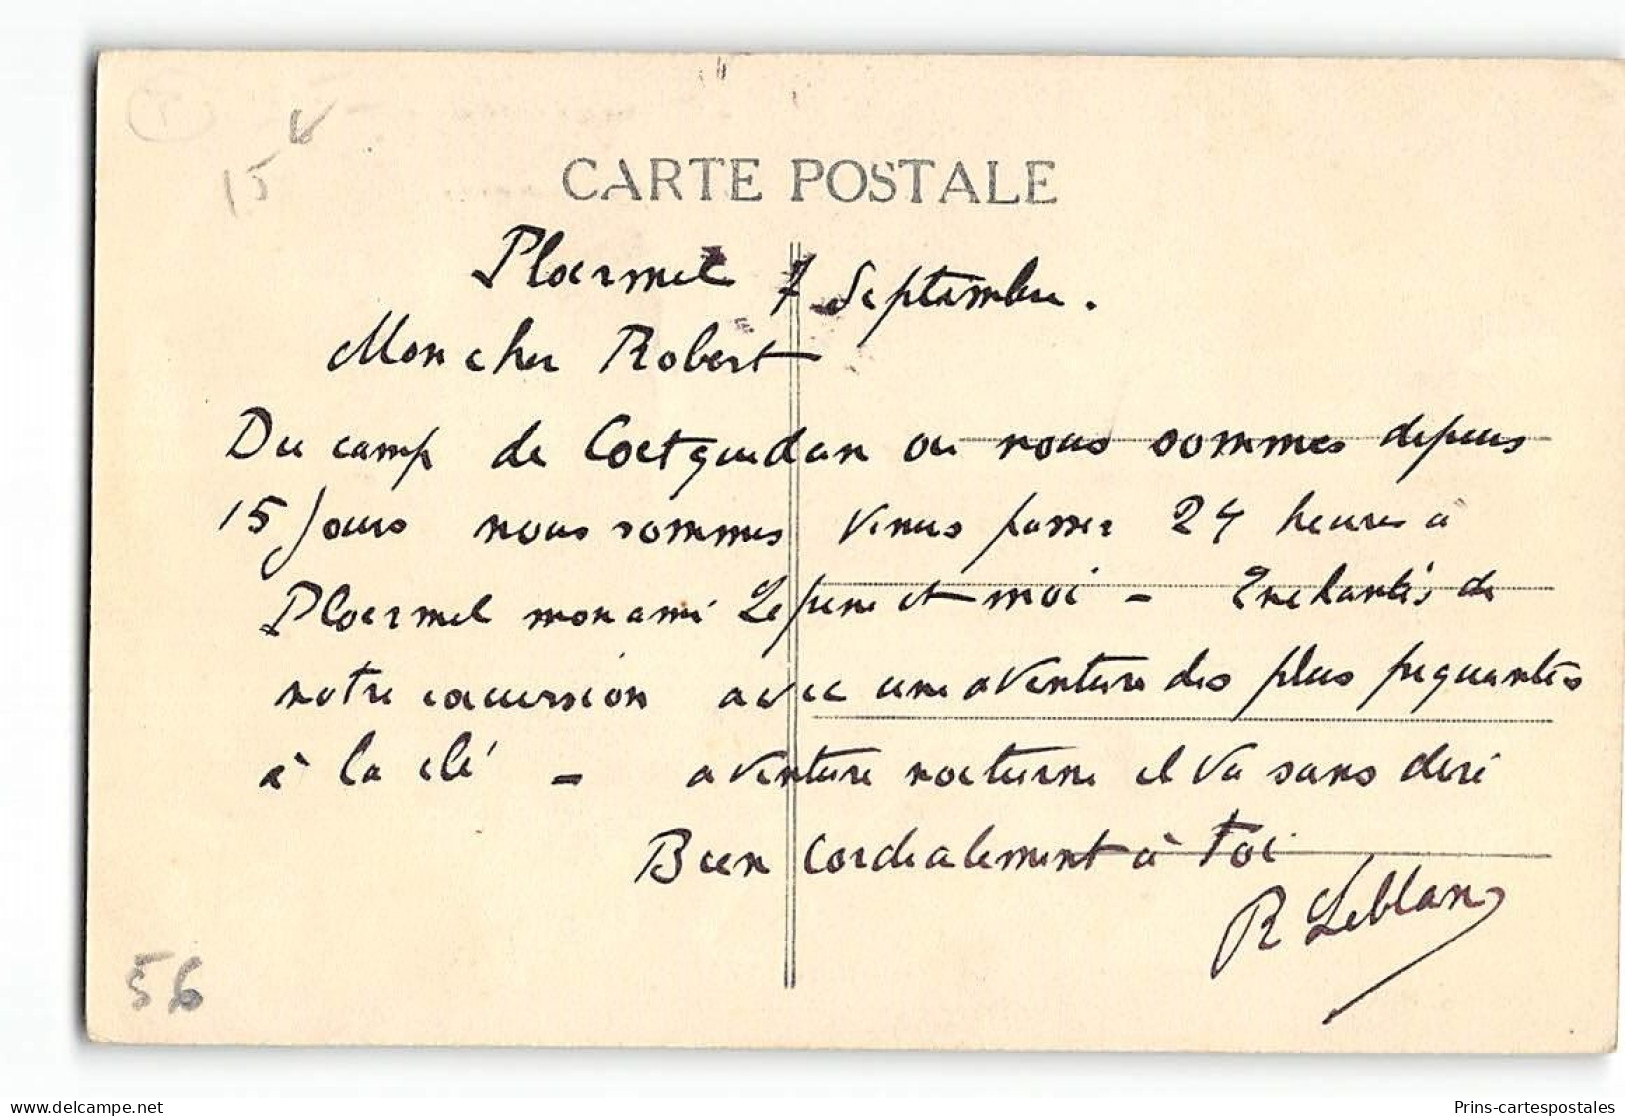 15
CARTE POSTALE
Ploermel 7 Septembre.
Mon cher Robert
Du camp de Coetquidan ou nous sommes depuis
15 jours nous sommes venus passer 24 heures a
Ploermel mon ami Lepene et moi - Enchantés de
notre excursion avec une aventure des plus piquantes
à la clé - aventure nocturne il va sans dire
Bien cordialement à toi
R Leblanc
56
delcampe.net
Prins-cartespostales